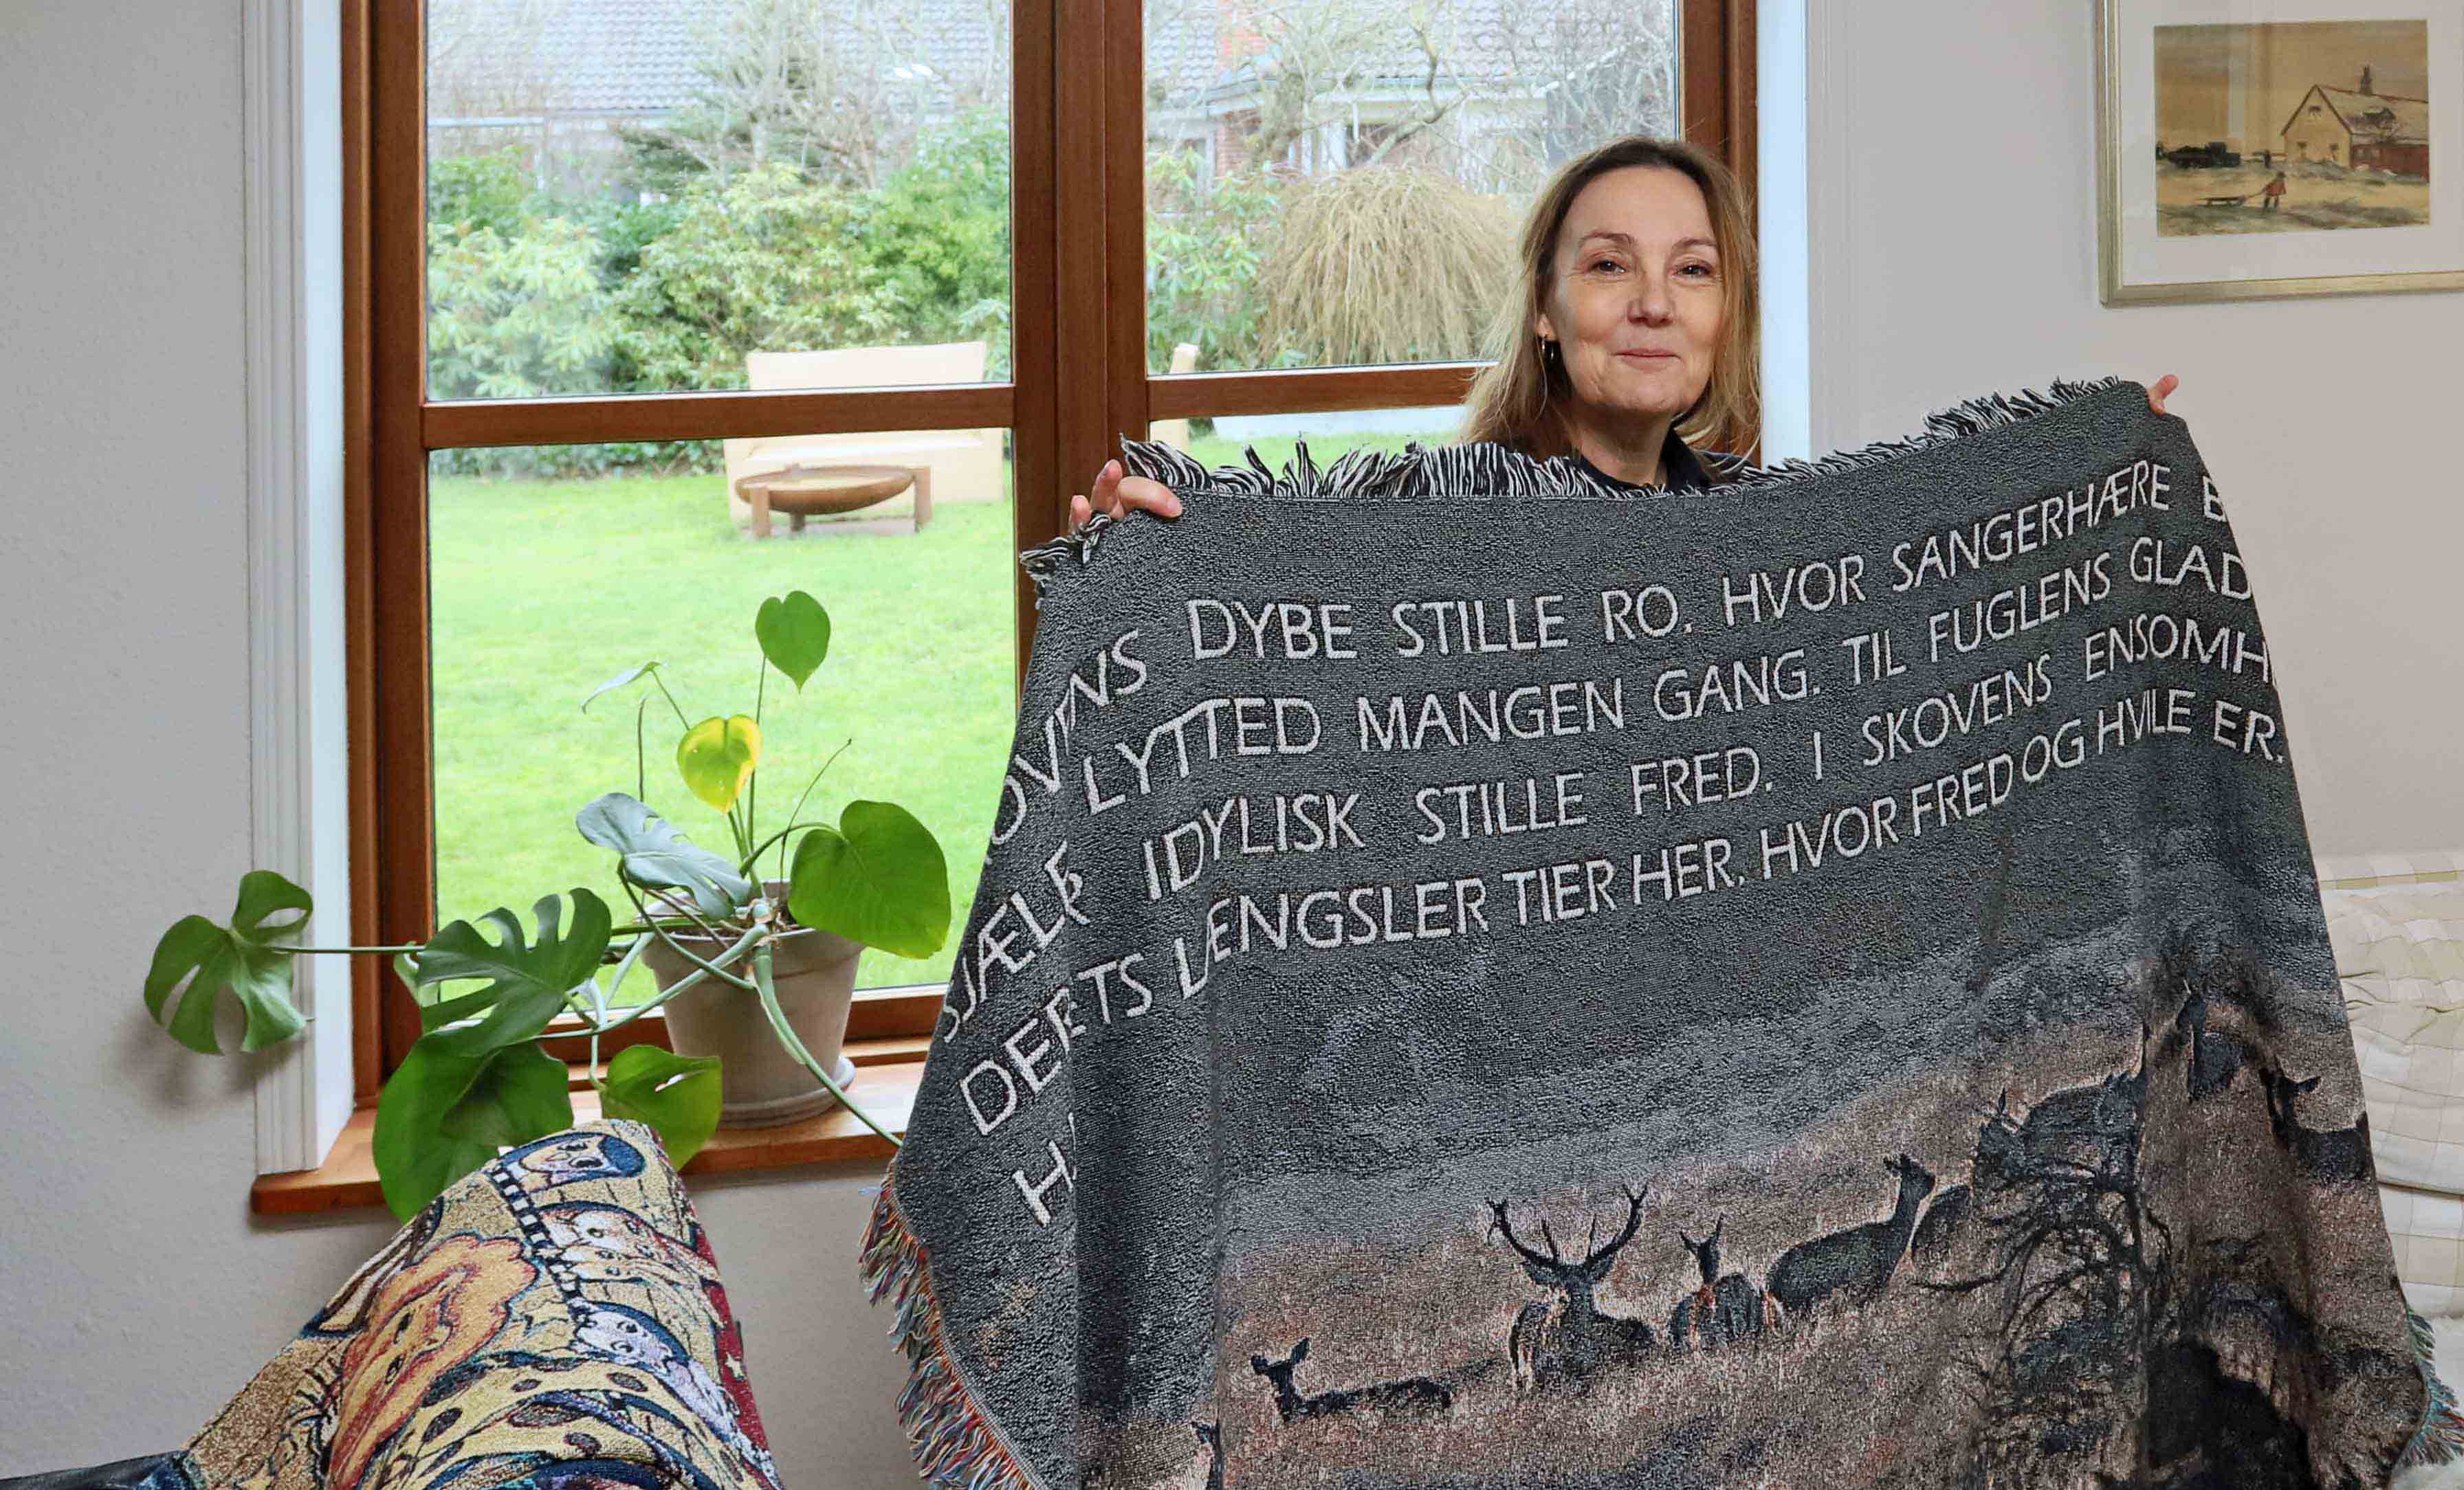 DYBE STILLE RO. HVOR SANGERHÆRE
LYTTED MANGEN GANG. TIL FUGLENS GLAD
SJÆLE IDYLISK STILLE FRED. I SKOVENS ENSOMH
DERTS LÆNGSLER TIER HER. HVOR FRED OG HVILE ER.